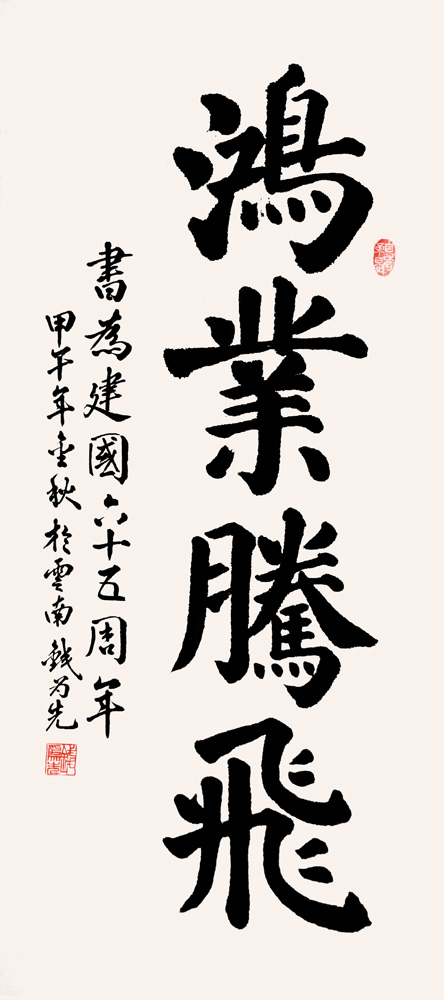 鴻業騰飛
書為建國六十五周年
甲午年金秋於雲南錢為先